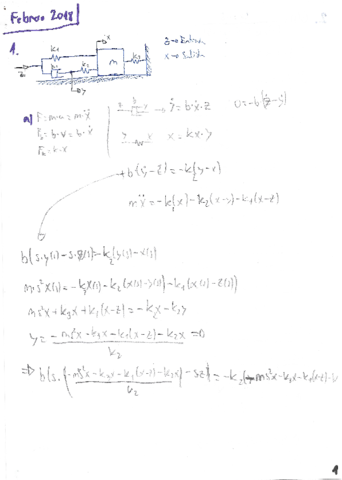 Febrero 2018
1.
z → Entrada
x → Salida
k1 x
m k3
b k2
z y
a) F = m·a = m·ẍ
Fb = b·v = b·ẋ
Fk = k·x
z b y → ẏ = b·ẋ·z 0 = -b(ż-ẏ)
y x x = kx·y
+b(ẏ-ż) = -k(y-x)
mẍ = -k3(x) - k2(x-y) - k1(x-z)
b(s·y(s) - s·z(s)) = -k2(y(s) - x(s))
m·s²X(s) = -k3X(s) - k2(x(s) - y(s)) - k1(x(s) - z(s))
ms²x + k3x + k1(x-z) = -k2x - k2y
y = -ms²x - k3x - k1(x-z) - k2x ⇒
k2
⇒ b(s·(-ms²x - k3x - k1(x-z) - k2x) - sz) = -k2(-ms²x - k3x - k1(x-z) -
k2
1